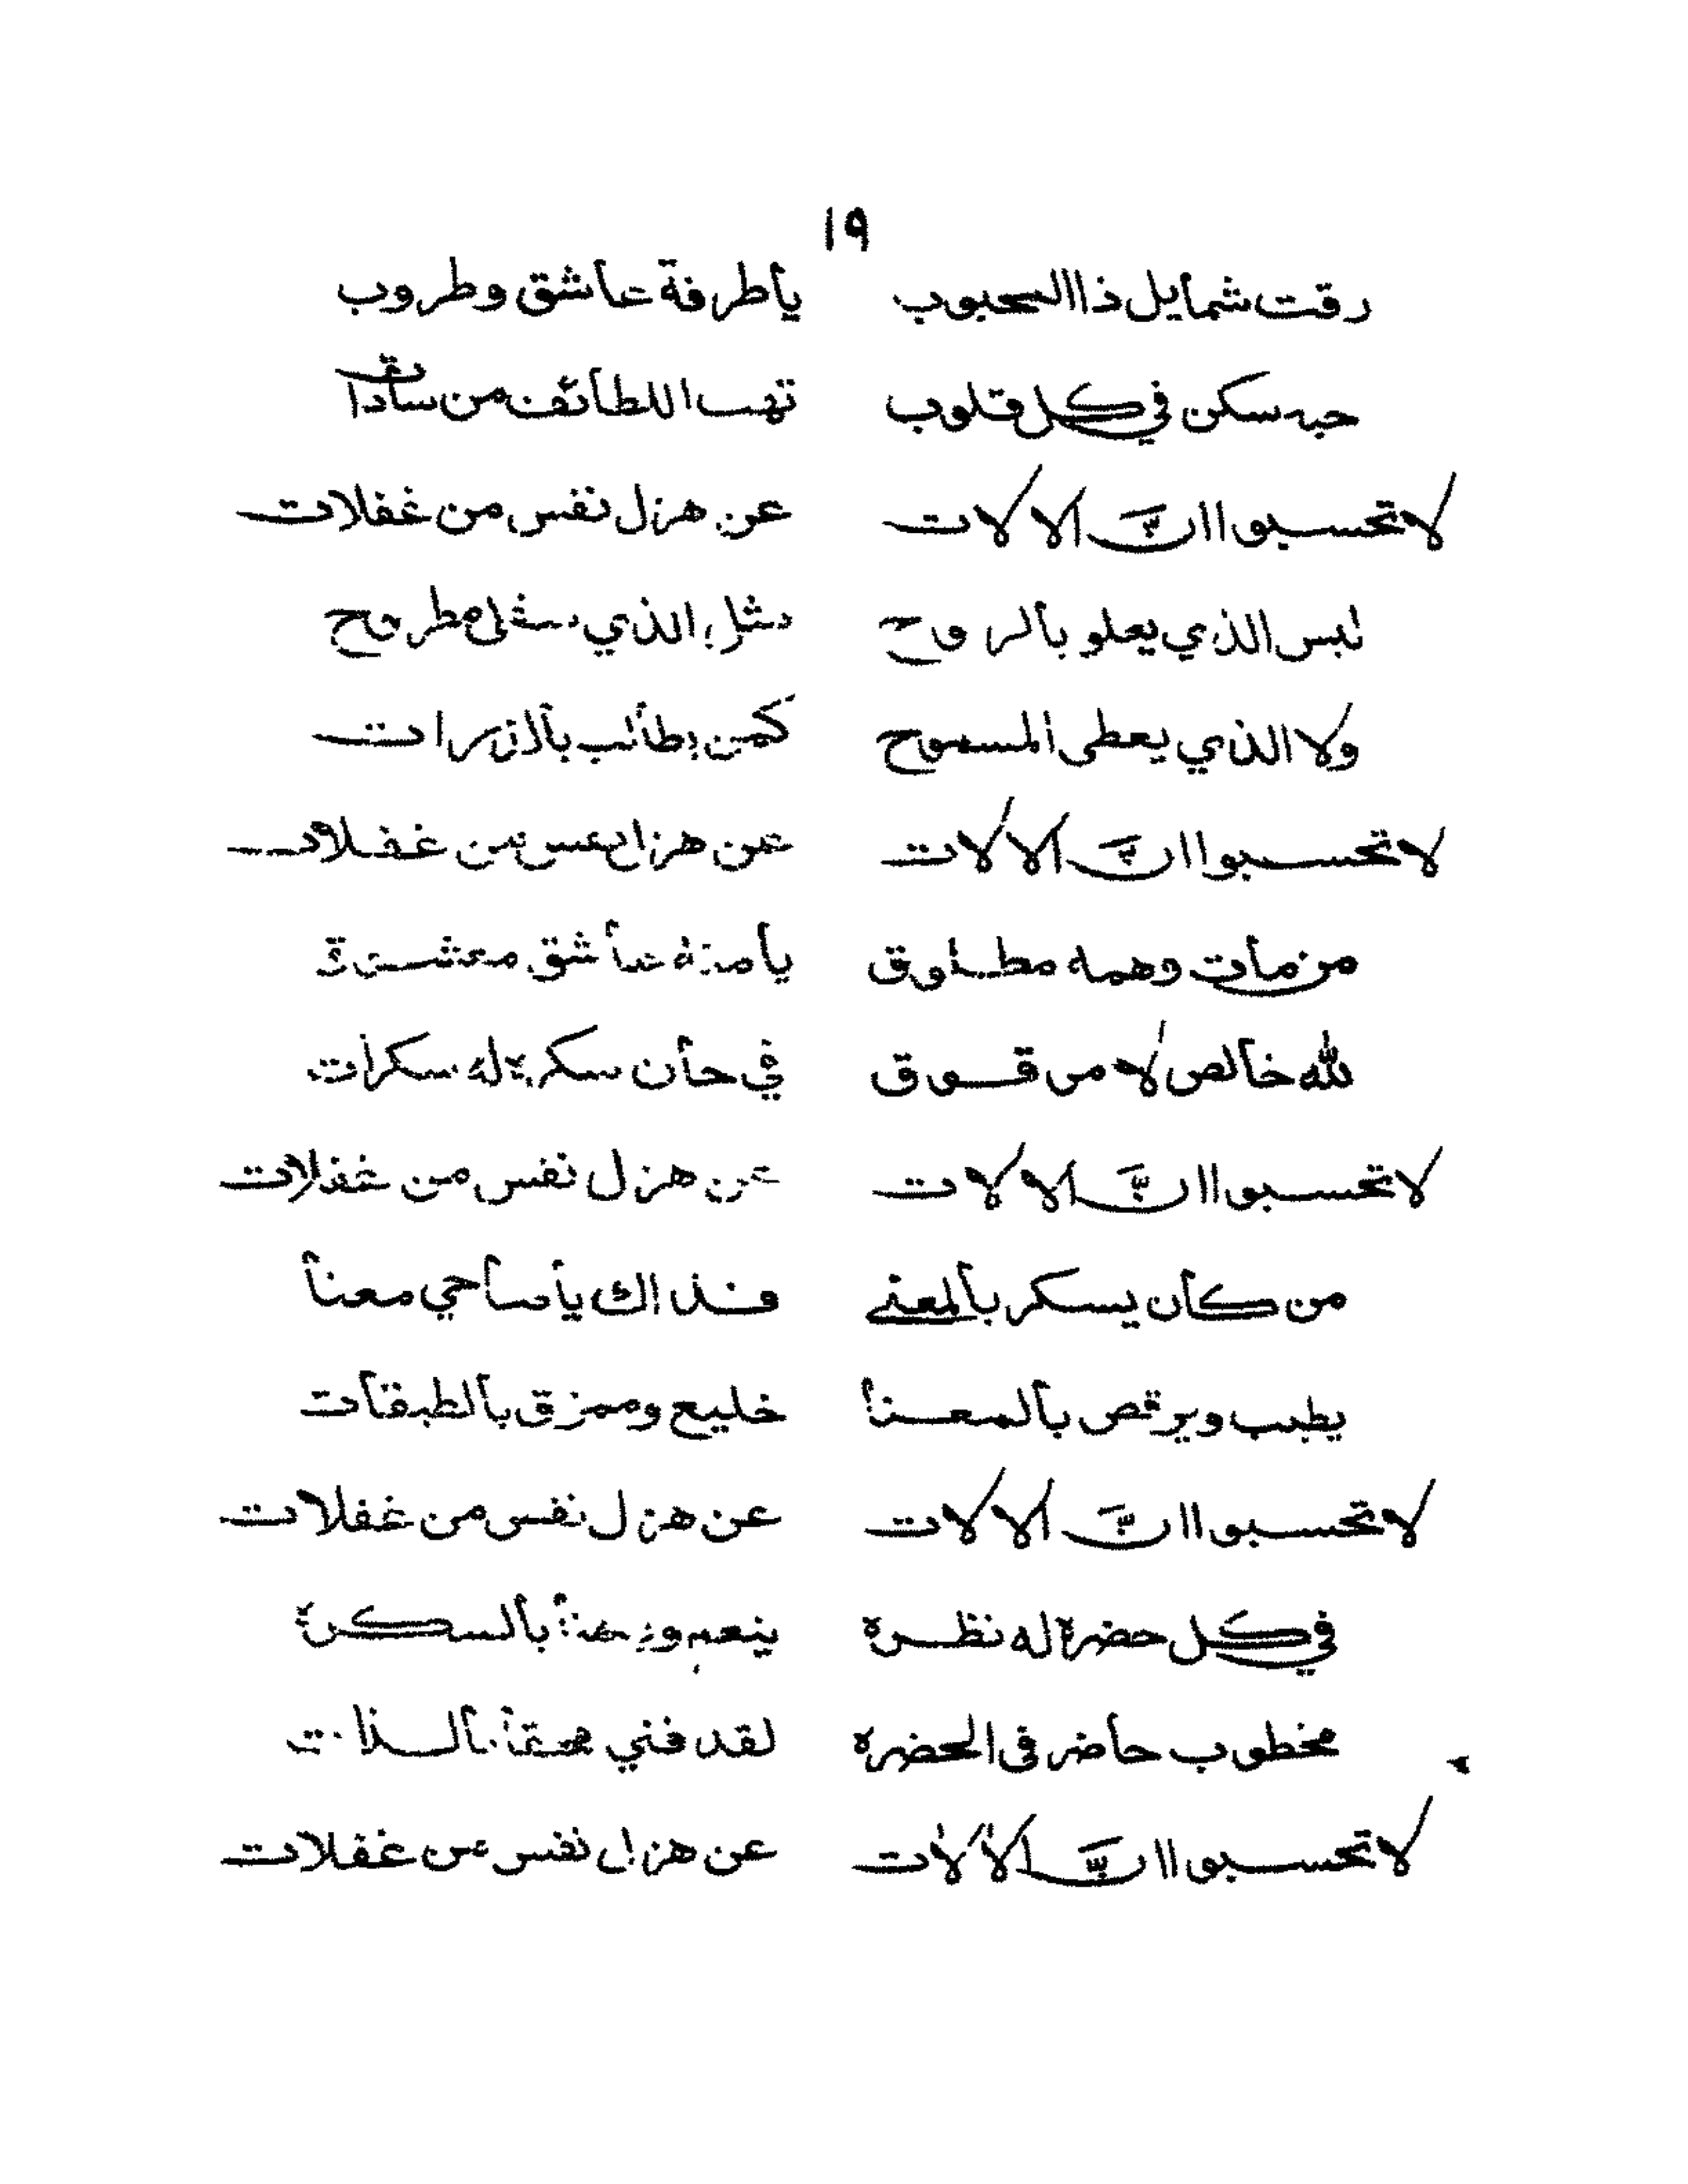 ١٩
رقت شمايل ذا المحبوب يا طرفة عاشق وطروب
حبه سكن في كل قلوب تهب اللطائف من سادات
لا تحسبوا انَّ الالات عن هزل نفس من غفلات
ليس الذي يعلو بالروح مثل الذي سفلي مطروح
ولا الذي يعطى المسموح كمن يطالب
لا تحسبوا انَّ الالات عن هزل نفس من غفلات
من مات وهمه مطلوق يا عاشق معشوق
لله خالص لا مرقوق في حان سكره له سكرات
لا تحسبوا انَّ الالات عن هزل نفس من غفلات
من كان يسكر بالمعنى فذاك يا صاحي معنا
يطيب ويرقص بالمعنا خليع وممزق بالطبقات
لا تحسبوا انَّ الالات عن هزل نفس من غفلات
في كل حضرة له نظره ينعم بالسكرة
مخطوب حاضر في الحضره لقد فني بالذات
لا تحسبوا انَّ الالات عن هزل نفس من غفلات